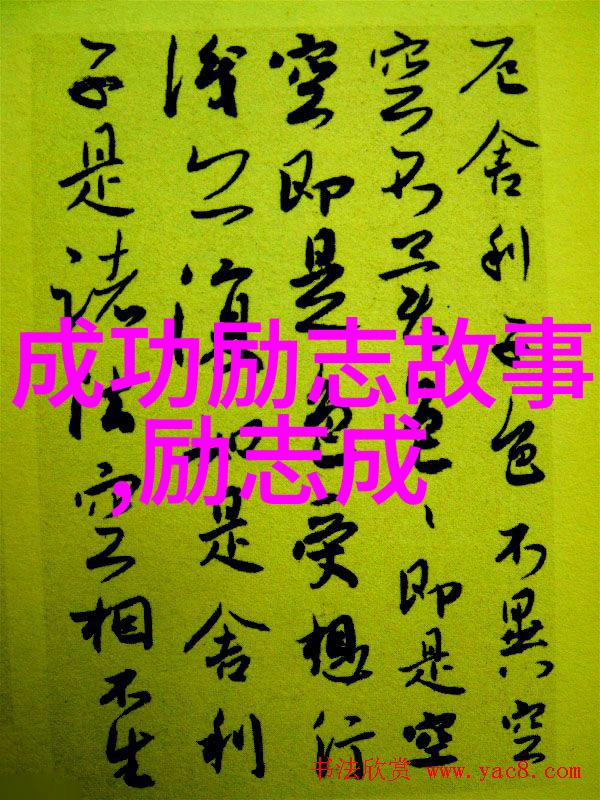 厄舍利子色不異空
空不異色、即是空
空即是色受想行
識亦復如是舍利
子是諸法空相不生
成功励志故事
,励志成
书法欣赏 www.yac8.com